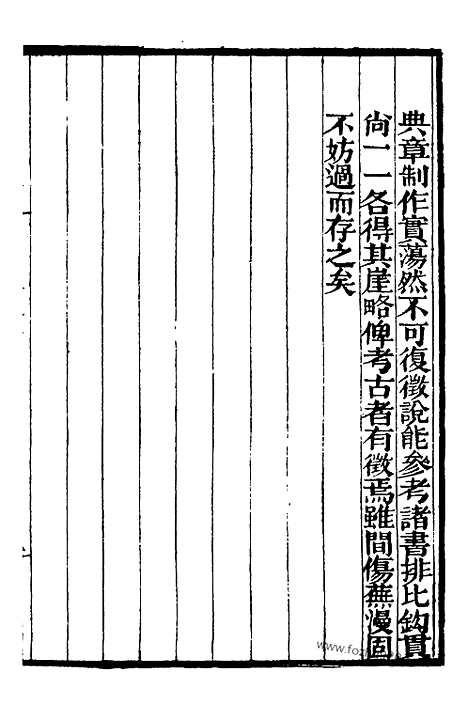 典章制作實蕩然不可復徵說能參考諸書排比鈎貫
尚一一各得其崖略俾考古者有徵焉雖間傷蕪漫固
不妨過而存之矣